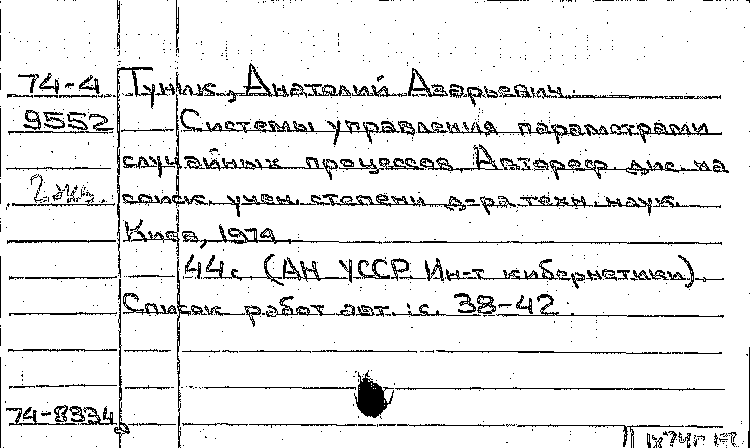 74-4 Туник, Анатолий Азарьевич.
9552 Системы управления параметрами
случайных процессов. Автореф. дис. на
2 экз. соиск. учен. степени д-ра техн. наук.
Киев, 1974.
44 с. (АН УССР. Ин-т кибернетики).
Список работ авт.: с. 38-42.
74-8334